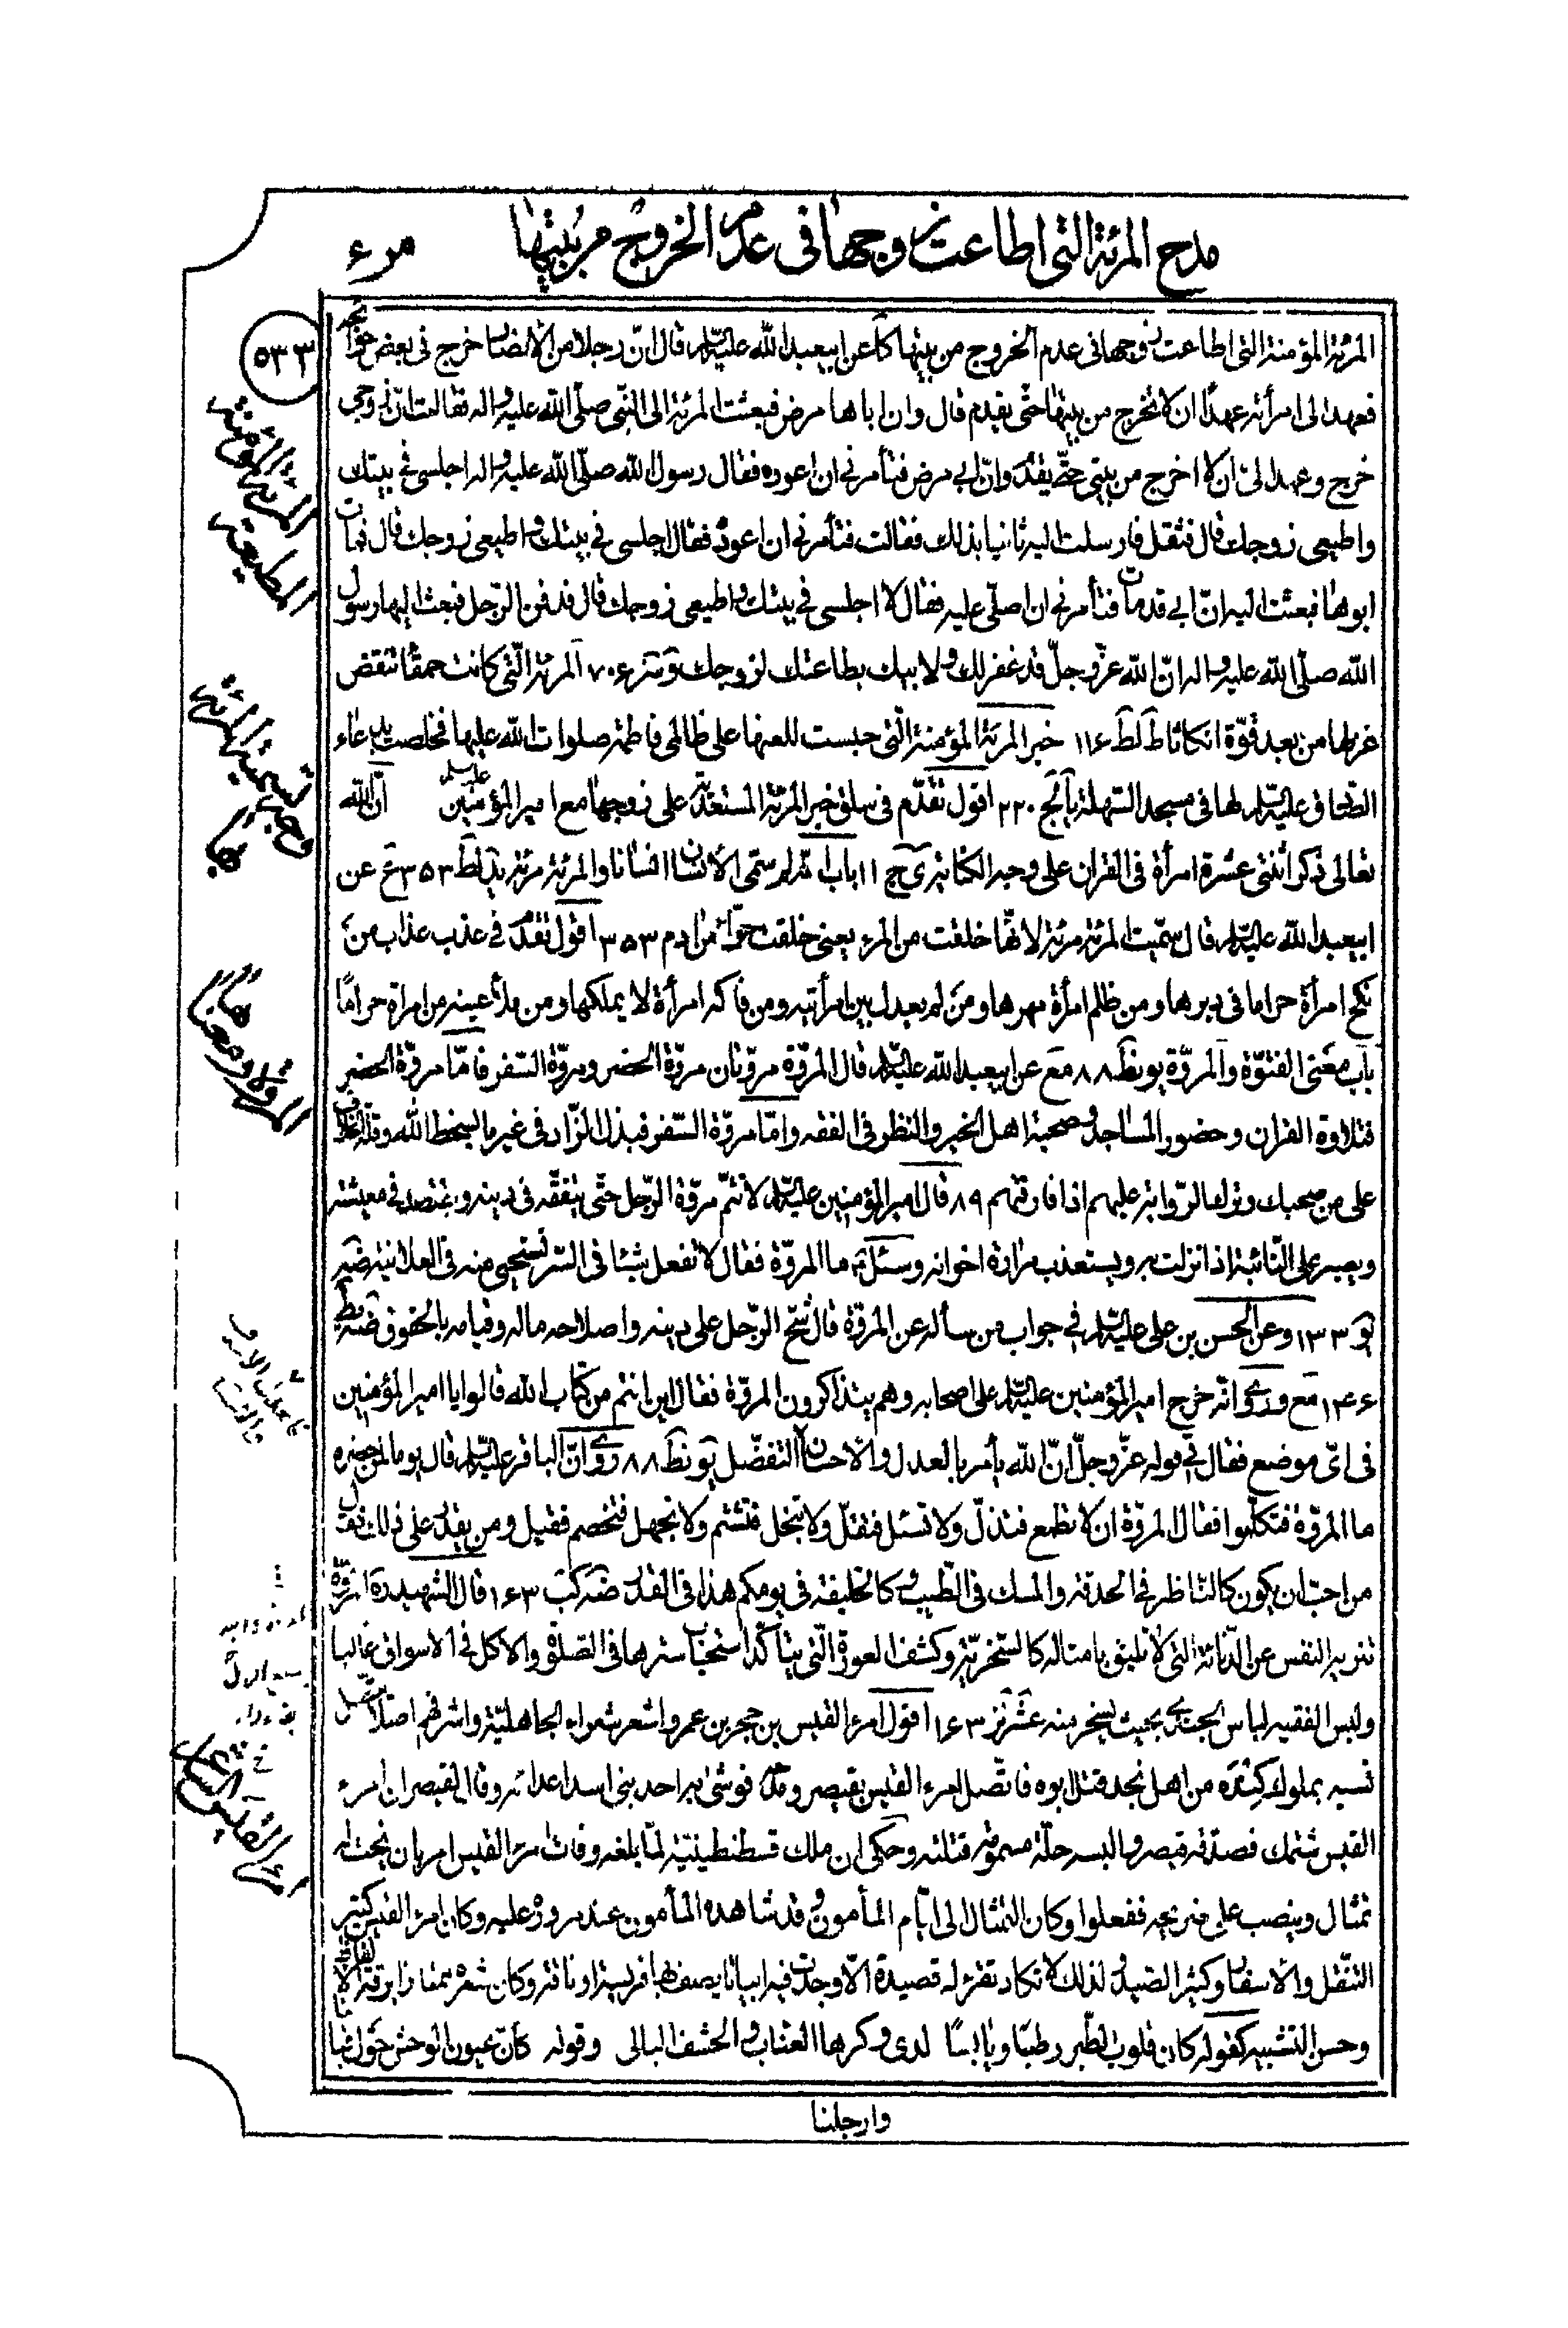 مدح المرئة التى اطاعت زوجها فى عدم الخروج من بيتها
مرء
٥٣٣
المرئة المؤمنة التى اطاعت زوجها فى عدم الخروج من بيتها كا عن ابيعبد الله عليه السلام قال ان رجلا من الأنصار خرج فى بعض حوائجه
فعهد الى امرأته عهدا ان لا تخرج من بيتها حتى يقدم قال وان اباها مرض فبعثت المرئة الى النبى صلى الله عليه واله فقالت ان زوجى
خرج وعهد الى ان لا اخرج من بيتى حتى يقدم وان ابى مرض فتأمرنى ان اعوده فقال رسول الله صلى الله عليه واله اجلسى فى بيتك
واطيعى زوجك قال فثقل فارسلت اليه ثانيا بذلك فقالت فتأمرنى ان اعوده فقال اجلسى فى بيتك واطيعى زوجك قال فمات
ابوها فبعثت اليه ان ابى قد مات فتأمرنى ان اصلى عليه فقال لا اجلسى فى بيتك واطيعى زوجك قال فدفن الرجل فبعث اليها رسول
الله صلى الله عليه واله ان الله عز وجل قد غفر لك ولابيك بطاعتك لزوجك ٧٠٦ المرئة التى كانت حمقا تنقض
غزلها من بعد قوة انكاثا ط لط ١١٦ خبر المرئة المؤمنة التى حبست للعنها على ظالمى فاطمة صلوات الله عليها فخلصت بدعاء
الصادق عليه السلام لها فى مسجد السهلة يا كج ٢٢٠ اقول تقدم فى سلق خبر المرئة المستعدية على زوجها مع امير المؤمنين عليه السلام ان الله
تعالى ذكر اثنتى عشرة امرأة فى القران على وجه الكناية ى ج ١١ باب انه لم سمى الأنسان انسانا والمرئة مرئة يد لط ٣٥٣ ع عن
ابيعبد الله عليه السلام قال سميت المرئة مرئة لانها خلقت من المرء يعنى خلقت حواء من ادم ٣٥٣ اقول تقدم فى عذب عذاب من
نكح امرأة حراما فى دبرها ومن ظلم امرأة مهرها ومن لم يعدل بين امرأتيه ومن فاكه امرأة لا يملكها ومن ملأ عينه من امراة حراما
باب معنى الفتوة والمروة يو نط ٨٨ مع عن ابيعبد الله عليه السلام قال المروة مروتان مروة الحضر ومروة السفر فاما مروة الحضر
فتلاوة القران وحضور المساجد وصحبة اهل الخير والنظر فى الفقه واما مروة السفر فبذل الزاد فى غير ما يسخط الله وقلة الخلاف
على من صحبك وترك الرواية عليهم اذا فارقتهم ٨٩ قال امير المؤمنين عليه السلام لا تتم مروة الرجل حتى يتفقه فى دينه ويقتصد فى معيشته
ويصبر على النائبة اذا نزلت به ويستعذب مرارة اخوانه وسئل ما المروة فقال لا تفعل شيئا فى السر تستحيى منه فى العلانية ضه يد
يو ١٣٣ وعن الحسن بن على عليه السلام فى جواب من سأله عن المروة قال شح الرجل على دينه واصلاحه ماله وقيامه بالحقوق ضه يط
١٤٦ مع وروى انه خرج امير المؤمنين عليه السلام على اصحابه وهم يتذاكرون المروة فقال اين انتم من كتاب الله قالوا يا امير المؤمنين
فى اى موضع فقال فى قوله عز وجل ان الله يأمر بالعدل والأحسان التفضل يو نط ٨٨ روى ان الباقر عليه السلام قال يوما لمن حضره
ما المروة فتكلموا فقال المروة ان لا تطمع فتذل ولا تسئل فتقل ولا تبخل فتشتم ولا تجهل فتخصم فقيل ومن يقدر على ذلك فقال
من احب ان يكون كالناظر فى الحدقة والمسك فى الطيب وكالخليفة فى يومكم هذا فى القدر ضه كب ١٦٣ قال الشهيد ره المروة
تنزيه النفس عن الدنائة التى لا تليق بامثاله كالسخرية وكشف العورة التى يتأكد استحباب سترها فى الصلوة والاكل فى الاسواق غالبا
ولبس الفقيه لباس الجندى بحيث يسخر منه عشر نز ١٦٣ اقول امرء القيس بن حجر بن عمرو اشعر شعراء الجاهلية واشرفهم اصلا يتصل
نسبه بملوك كندة من اهل نجد قتل ابوه فاتصل امرء القيس بقيصر فوشى به احد بنى اسد اعدائه وقال لقيصر ان امرء
القيس شتمك فصدقه قيصر والبسه حلة مسمومة قتلته وحكى ان ملك قسطنطينية لما بلغه وفات امرء القيس امر بان ينحت له
تمثال وينصب على ضريحه ففعلوا وكان التمثال الى ايام المأمون وقد شاهده المأمون عند مروره عليه وكان امرء القيس كثير
التنقل والأسفار وكثير الصيد لذلك لا تكاد تقرء له قصيدة الا وجدت فيه ابياتا يصف بها فرسه او ناقته وكان شعره ممتازا برقة الالفاظ
وحسن التشبيه كقوله كان قلوب الطير رطبا ويابسا لدى وكرها العناب والحشف البالى وقوله كان عيون الوحش حول خبائنا
وارجلنا
المرئة المؤمنة
المطيعة
وجه تسمية المرئة
بها
المروة ومعناها
امرء القيس الشاعر